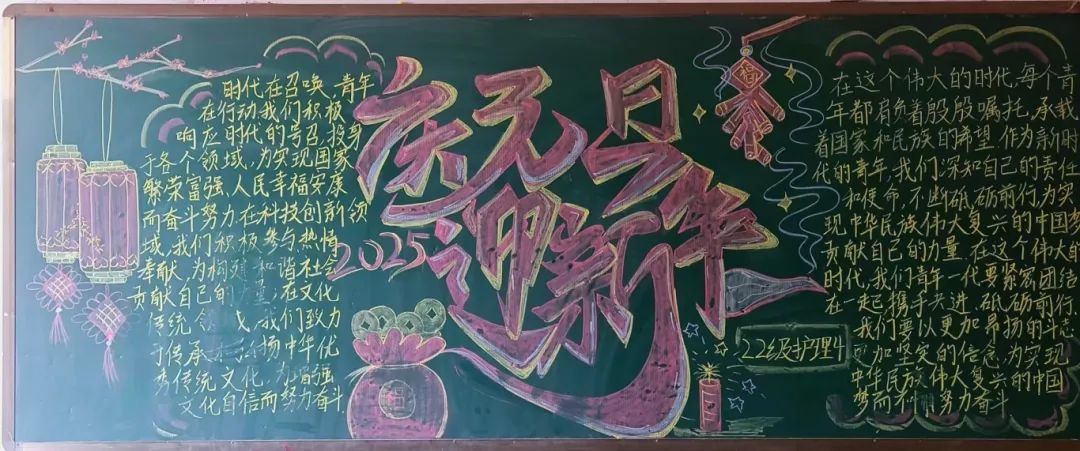 时代在召唤,青年
在行动我们积极
响应时代的号召,投身
于各个领域,为实现国家
繁荣富强、人民幸福安康
而奋斗努力在科技创新领
域,我们积极参与,热情
奉献,为构建和谐社会
贡献自己的力量;在文化
传统领域,我们致力
于传承和弘扬中华优
秀传统文化,为增强
文化自信而努力奋斗.
庆元旦
迎新年
2025
福
22级护理4
在这个伟大的时代,每个青
年都肩负着殷殷嘱托,承载
着国家和民族的希望.作为新时
代的青年,我们深知自己的责任
和使命,不断砥砺前行,为实
现中华民族伟大复兴的中国梦
贡献自己的力量.在这个伟大的
时代,我们青年一代要紧密团结
在一起,携手共进,砥砺前行.
我们要以更加昂扬的斗志
更加坚实的信念,为实现
中华民族伟大复兴的中国
梦而不懈努力奋斗